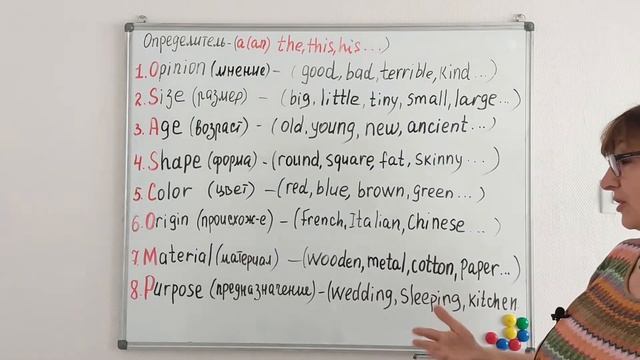 Определитель-(a(an) the, this, his...)
1. Opinion (мнение) - (good, bad, terrible, kind...)
2. Size (размер) - (big, little, tiny, small, large...)
3. Age (возраст) - (old, young, new, ancient...)
4. Shape (форма) - (round, square, fat, skinny...)
5. Color (цвет) - (red, blue, brown, green...)
6. Origin (происхож-е) - (french, Italian, Chinese...)
7. Material (материал) - (wooden, metal, cotton, paper...)
8. Purpose (предназначение) - (wedding, sleeping, kitchen